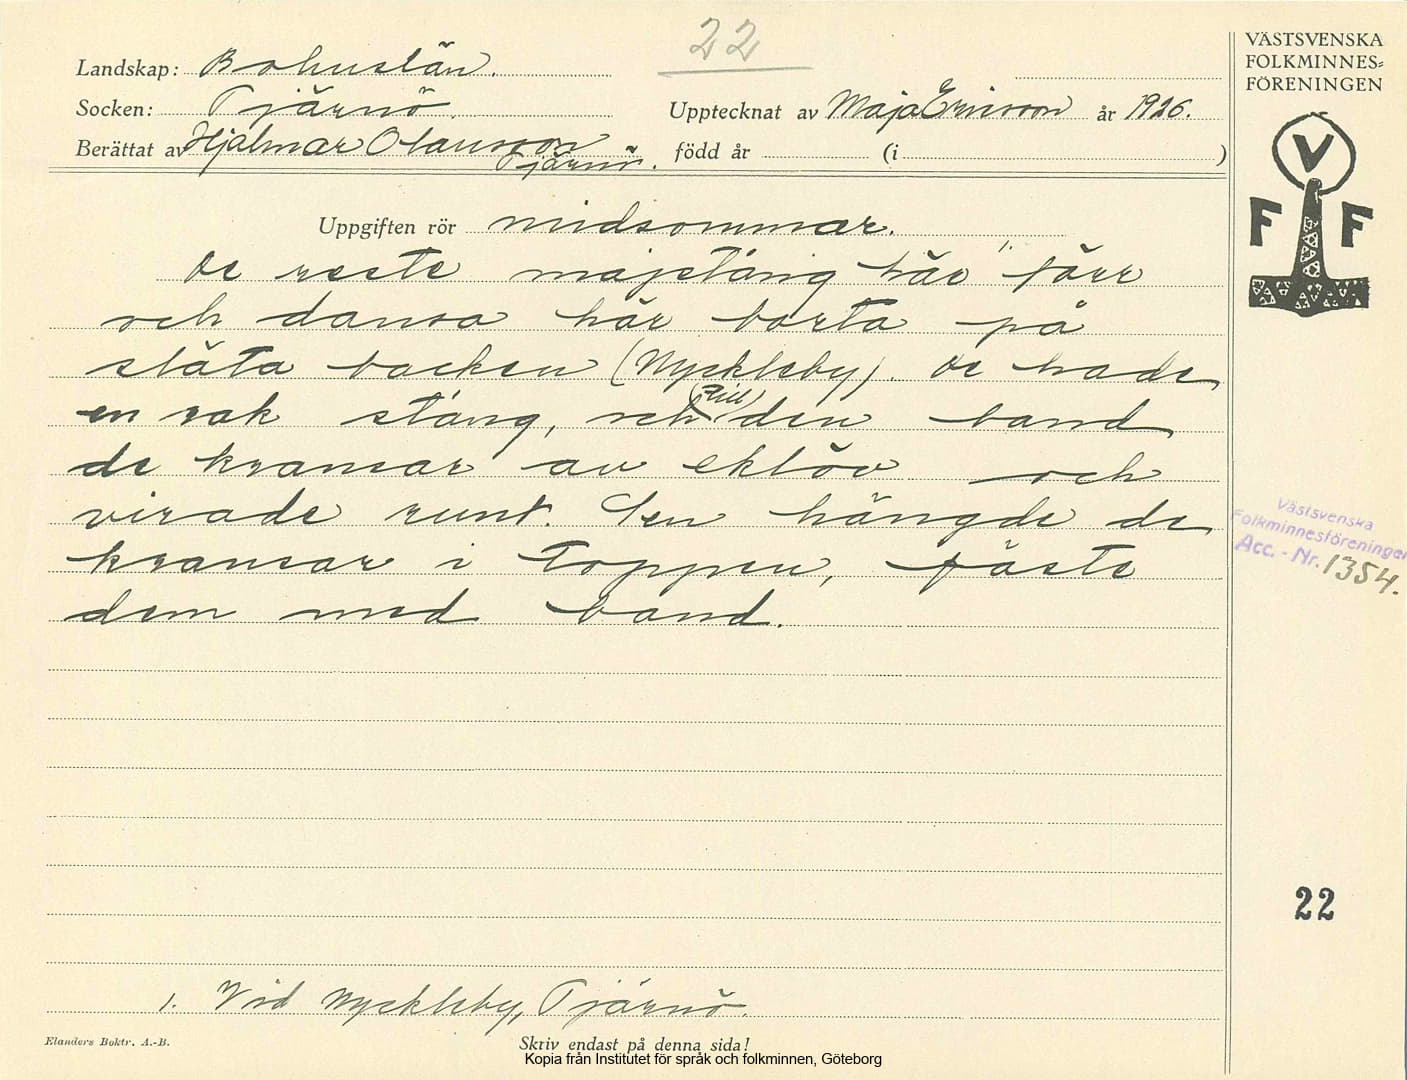 22
VÄSTSVENSKA
FOLKMINNES=
FÖRENINGEN
Landskap: Bohuslän.
Socken: Tjärnö.
Upptecknat av Maja Ericsson år 1926.
Berättat av Hjalmar Olausson
Tjärnö.
född år (i )
V
F F
Uppgiften rör midsommar.
De reste majstång här 1. förr
och dansa här borta på
släta backen (Nyckleby). De hade
en rak stång, och (till) den band
de kransar av eklöv och
virade runt. Sen hängde de
kransar i toppen, fäste
dem med band.
Västsvenska
Folkminnesföreningen
Acc. - Nr. 1354.
22
1. Vid Nyckleby, Tjärnö.
Elanders Boktr. A.-B.
Skriv endast på denna sida!
Kopia från Institutet för språk och folkminnen, Göteborg